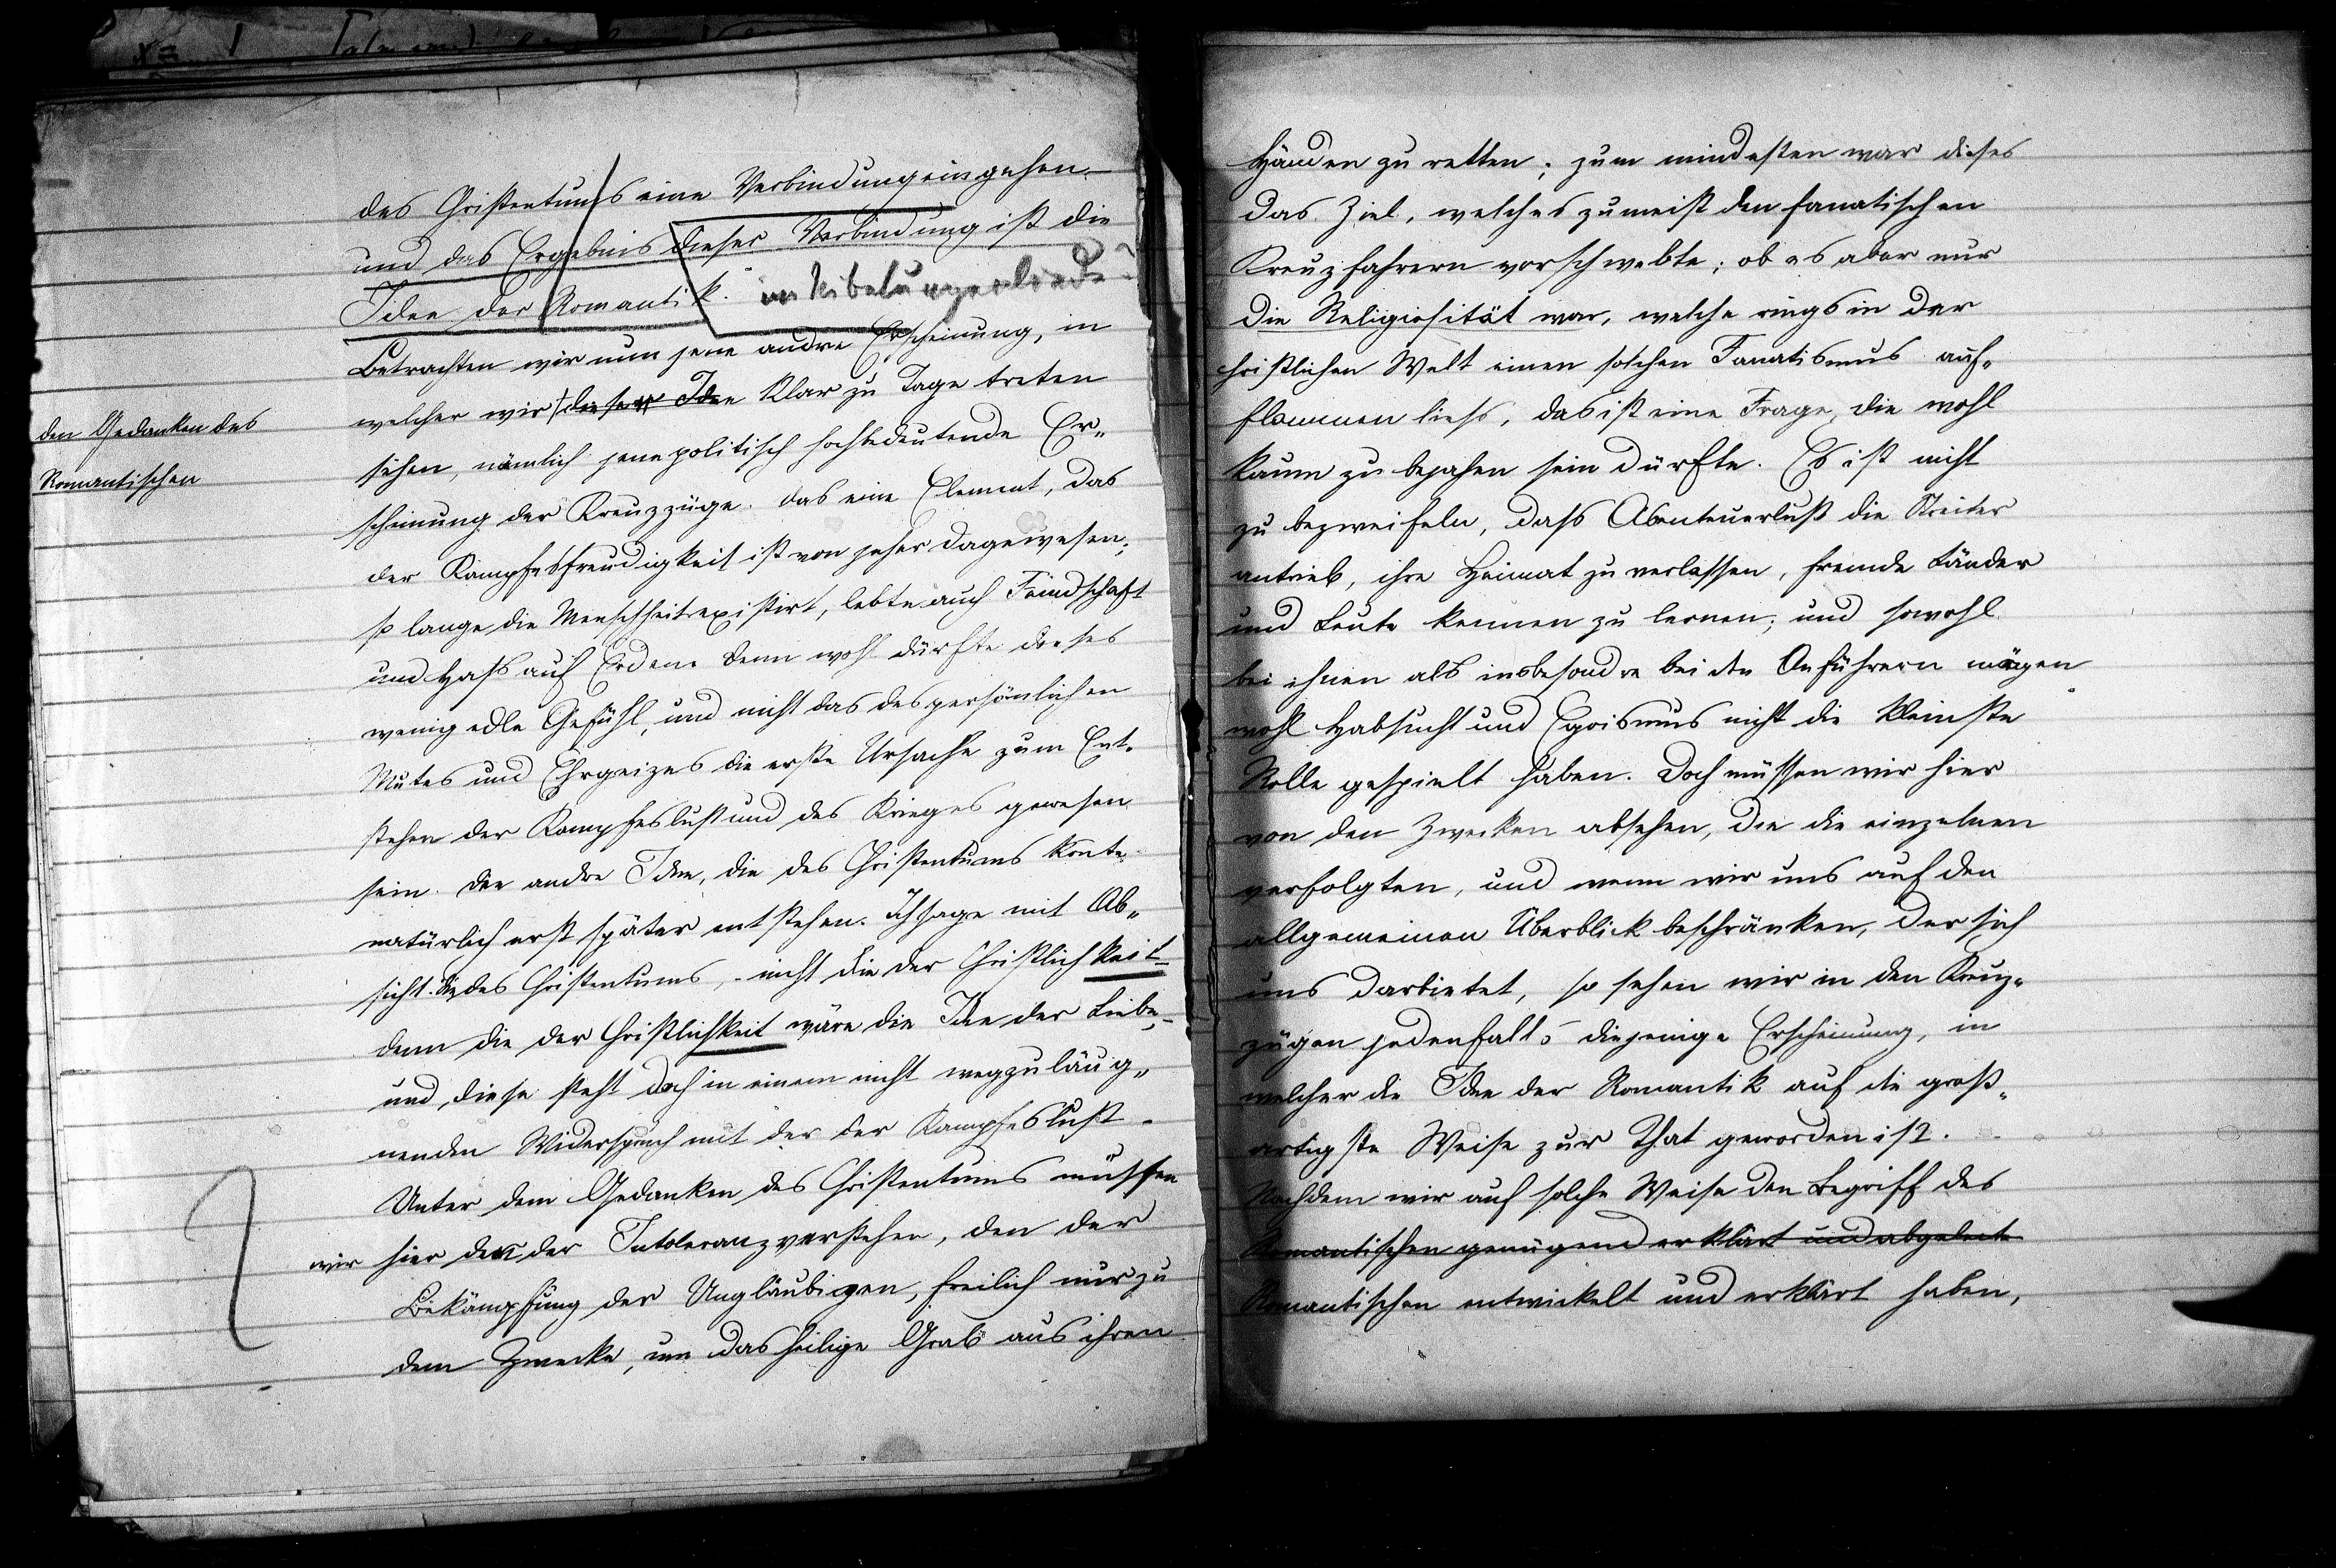 des Christentums eine Verbindung eingehen. –
und das Ergebnis dieser Verbindung ist die
Idee der Romantik. im Nibelungenliede?
Betrachten wir nun jene andre Erscheinung, in
welcher wir diese Idee klar zu Tage treten
den Gedanken des
Romantischen
sehen, nämlich jene politisch hochbedeutende Er„
scheinung der Kreuzzüge. das eine Element, das
der Kampfesfreudigkeit ist von jeher dagewesen;
so lange die Menschheit existirt, lebte auch Feindschaft
und Haß auf Erden denn wohl dürfte dieses
wenig edle Gefühl, und nicht das des persönlichen
Mutes und Ehrgeizes die erste Ursache zum Ent„
stehen der Kampfeslust und des Krieges gewesen
sein. Die andre Idee, die des Christentums konte
natürlich erst später entstehen. Ich sage mit Ab„
sicht die des Christentums, - nicht die der Christlichkeit -
denn die der Christlichkeit wäre die Idee der Liebe, -
und diese steht doch in einem nicht wegzuläug„
nenden Widerspruch mit der der Kampfeslust.
Unter dem Gedanken des Christentums müssen
wir hier den der Intoleranz verstehen, den der
Bekämpfung der Ungläubigen, freilich nur zu
dem Zwecke, um das heilige Grab aus ihren
Händen zu retten; zum mindesten war dieses
das Ziel, welches zumeist den fanatischen
Kreuzfahrern vorschwebte; ob es aber nur
die Religiosität war, welche rings in der
christlichen Welt einen solchen Fanatismus auf„
flammen ließ, das ist eine Frage, die wohl
kaum zu bejahen sein dürfte. Es ist nicht
zu bezweifeln, daß Abenteuerlust die Streiter
antrieb, ihre Heimat zu verlassen, fremde Länder
und Leute kennen zu lernen; und sowohl
bei ihnen als insbesondre bei den Anführern mögen
wohl Habsucht und Egoismus nicht die kleinste
Rolle gespielt haben. Doch müssen wir hier
von den Zwecken absehen, die die einzelnen
verfolgten, und wenn wir uns auf den
allgemeinen Überblick beschränken, der sich
uns darbietet, so sehen wir in den Kreuz„
zügen jedenfalls diejenige Erscheinung, in
welcher die Idee der Romantik auf die groß„
artigste Weise zur That geworden ist.
Nachdem wir auf solche Weise den Begriff des
Romantischen genügend erklärt und abgeleit
Romantischen entwickelt und erklärt haben,